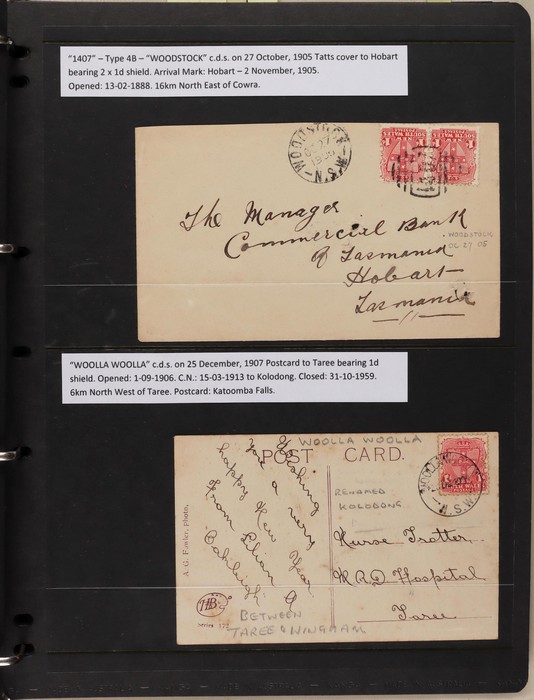 "1407" – Type 4B – "WOODSTOCK" c.d.s. on 27 October, 1905 Tatts cover to Hobart
bearing 2 x 1d shield. Arrival Mark: Hobart – 2 November, 1905.
Opened: 13-02-1888. 16km North East of Cowra.
WOODSTOCK
OC 27
1905
N.S.W.
The Manager
Commercial Bank
of Tasmania
Hobart
Tasmania
WOODSTOCK
OC 27 05
"WOOLLA WOOLLA" c.d.s. on 25 December, 1907 Postcard to Taree bearing 1d
shield. Opened: 1-09-1906. C.N.: 15-03-1913 to Kolodong. Closed: 31-10-1959.
6km North West of Taree. Postcard: Katoomba Falls.
WOOLLA WOOLLA
POST CARD.
RENAMED
KOLODONG
Wishing
you a very
happy New Year
From Lilian G
Nurse Trotter
M.R.D Hospital
Taree
A. G. Fowler, Photo.
HB
series 122
BETWEEN
TAREE & WINGHAM
N.S.W.